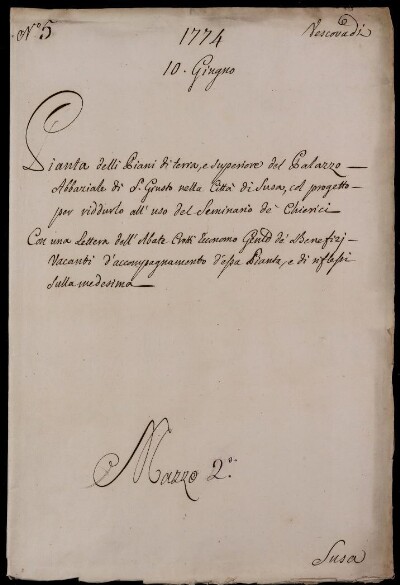 N.º 5
1774
Vescovadi
10. Giugno
Pianta delli Piani di terra, e superiore del Palazzo
Abbaziale di S. Giusto nella Città di Susa, col progetto
per riddurlo all'uso del Seminario de' Chierici
Con una Lettera dell'Abate Economo Gen.le de' Benefizj
Vacanti d'accompagnamento d'essa Pianta, e di riflessi
sulla medesima
Mazzo 2.º
Susa